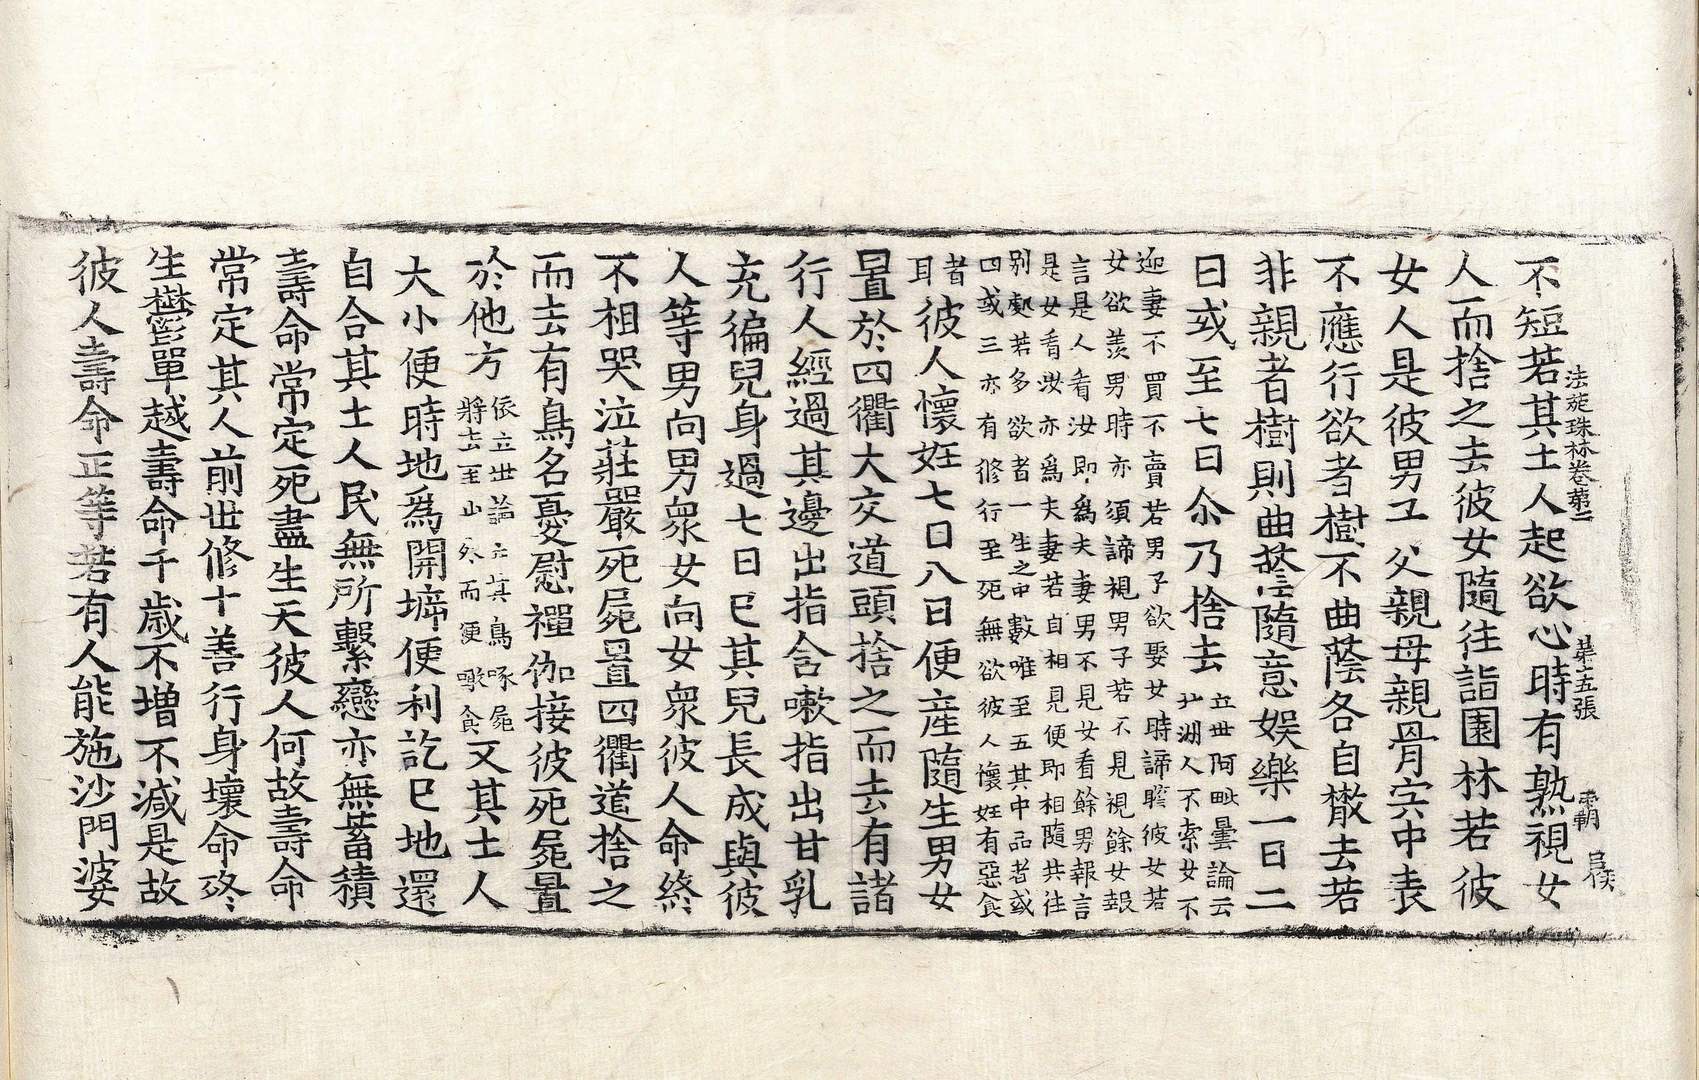 法苑珠林卷第二 第五張 霸
不短若其土人起欲心時有熟視女
人而捨之去彼女隨往詣園林若彼
女人是彼男工父親母親骨宍中表
不應行欲者樹不曲蔭各自㪚去若
非親者樹則曲蔭隨意娛樂一日二
日或至七日尒乃捨去
立世阿毗曇論云
洲人不索女不
迎妻不買不賣若男子欲娶女時諦瞻彼女若
女欲羨男時亦須諦視男子若不見視餘女報
言是人看汝即爲夫妻男不見女看餘男報言
是女看汝亦爲夫妻若自相見便即相隨共往
別處若多欲者一生之中數唯至五其中品者或
四或三亦有修行至死無欲彼人懷妊有惡食
者
耳
彼人懷妊七日八日便産隨生男女
置於四衢大交道頭捨之而去有諸
行人經過其邊出指含嗽指出甘乳
充徧兒身過七日已其兒長成與彼
人等男向男衆女向女衆彼人命終
不相哭泣莊嚴死屍置四衢道捨之
而去有鳥名憂慰禪伽接彼死屍置
於他方
依立世論云其鳥啄屍
將去至山外而便噉食
又其土人
大小便時地爲開坼便利訖已地還
自合其土人民無所繫戀亦無蓄積
壽命常定死盡生天彼人何故壽命
常定其人前世修十善行身壞命終
生欝單越壽命千歲不增不減是故
彼人壽命正等若有人能施沙門婆